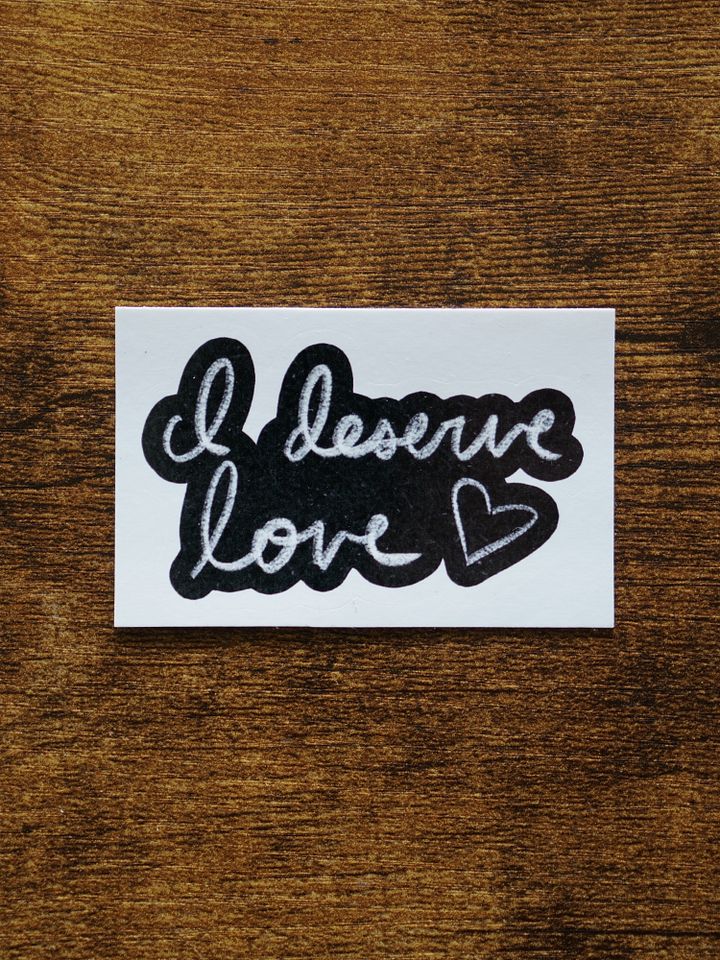 I deserve
love